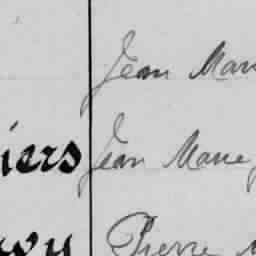 Jean Mari
iers Jean Marie
Pierre